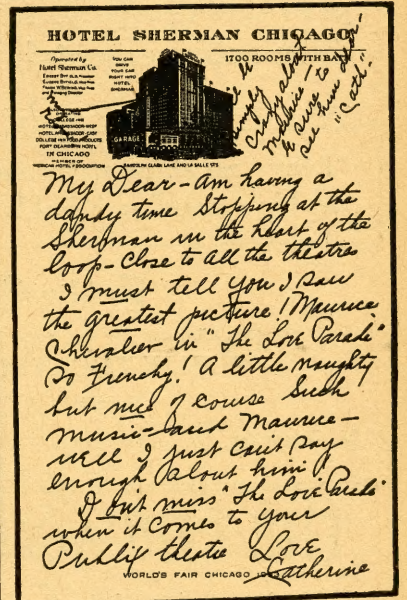 HOTEL SHERMAN CHICAGO
Operated by
Hotel Sherman Co.
YOU CAN
DRIVE
YOUR CAR
RIGHT INTO
HOTEL
SHERMAN
1700 ROOMS WITH BATH
IN CHICAGO
MEMBER OF
AMERICAN HOTEL ASSOCIATION
GARAGE
RANDOLPH CLARK LAKE AND LA SALLE STS.
simply
crazy about
Maurice!
be sure to
see him dear—
"Cath."
My Dear – am having a
dandy time Stopping at the
Sherman in the heart of the
loop – Close to all the theatres
I must tell you I saw
the greatest picture! Maurice
Chevalier in "The Love Parade"
So Frenchy! A little naughty
but nice of course Such
music – and Maurice –
well I just can't say
enough about him!
Don't miss "The Love Parade"
when it comes to your
Publix theatre Love
Catherine
WORLD'S FAIR CHICAGO